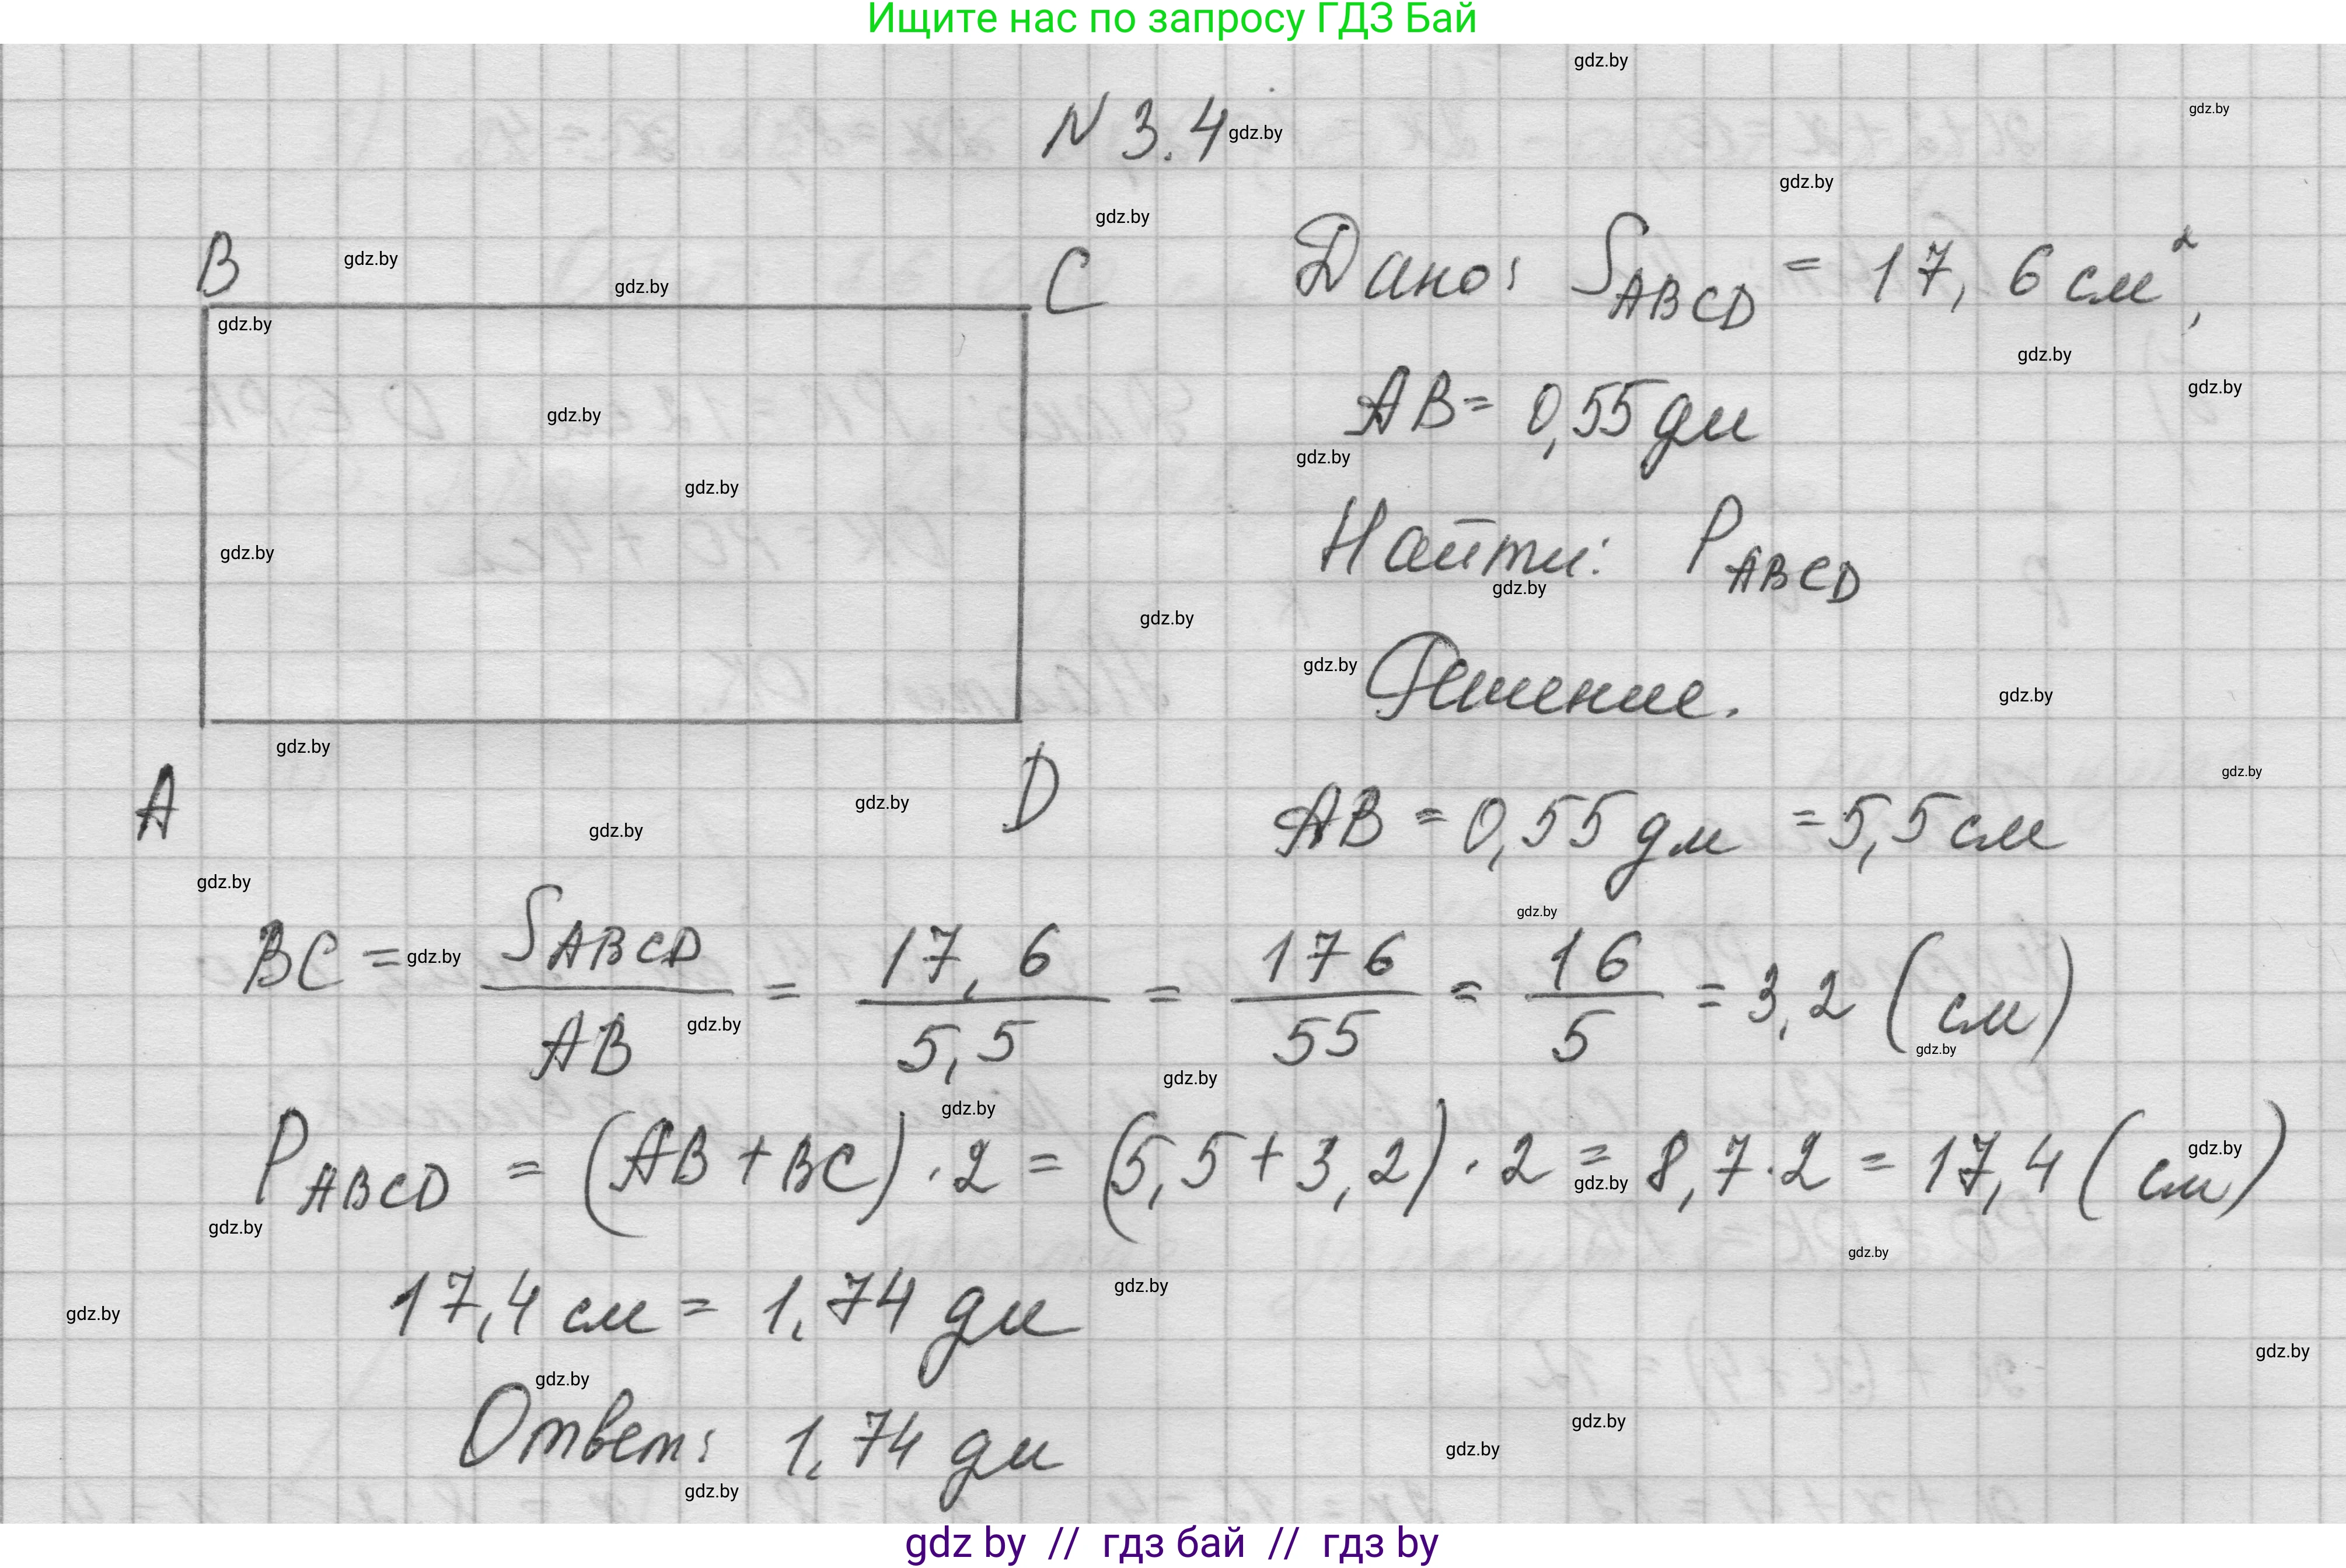 Ищите нас по запросу ГДЗ Бай
gdz.by
gdz.by
N 3.4 gdz.by
gdz.by
gdz.by
B gdz.by gdz.by C
Дано: S_ABCD = 17,6 см²,
gdz.by
gdz.by
gdz.by
gdz.by
AB = 0,55 дм
gdz.by
gdz.by
gdz.by
Найти: P_ABCD
gdz.by
gdz.by
gdz.by Решение.
gdz.by
gdz.by
A gdz.by D
gdz.by
gdz.by
AB = 0,55 дм = 5,5 см
gdz.by
gdz.by
BC = gdz.by S_ABCD / AB = 17,6 / 5,5 = 176 / 55 = 16 / 5 = 3,2 (см)
gdz.by
gdz.by
gdz.by
gdz.by
P_ABCD = (AB + BC) · 2 = (5,5 + 3,2) · 2 = 8,7 · 2 = 17,4 (см)
gdz.by
gdz.by
gdz.by
gdz.by
17,4 см = 1,74 дм
gdz.by
gdz.by
gdz.by
gdz.by
Ответ: 1,74 дм
gdz.by
gdz.by
gdz.by
gdz by // гдз бай // гдз by